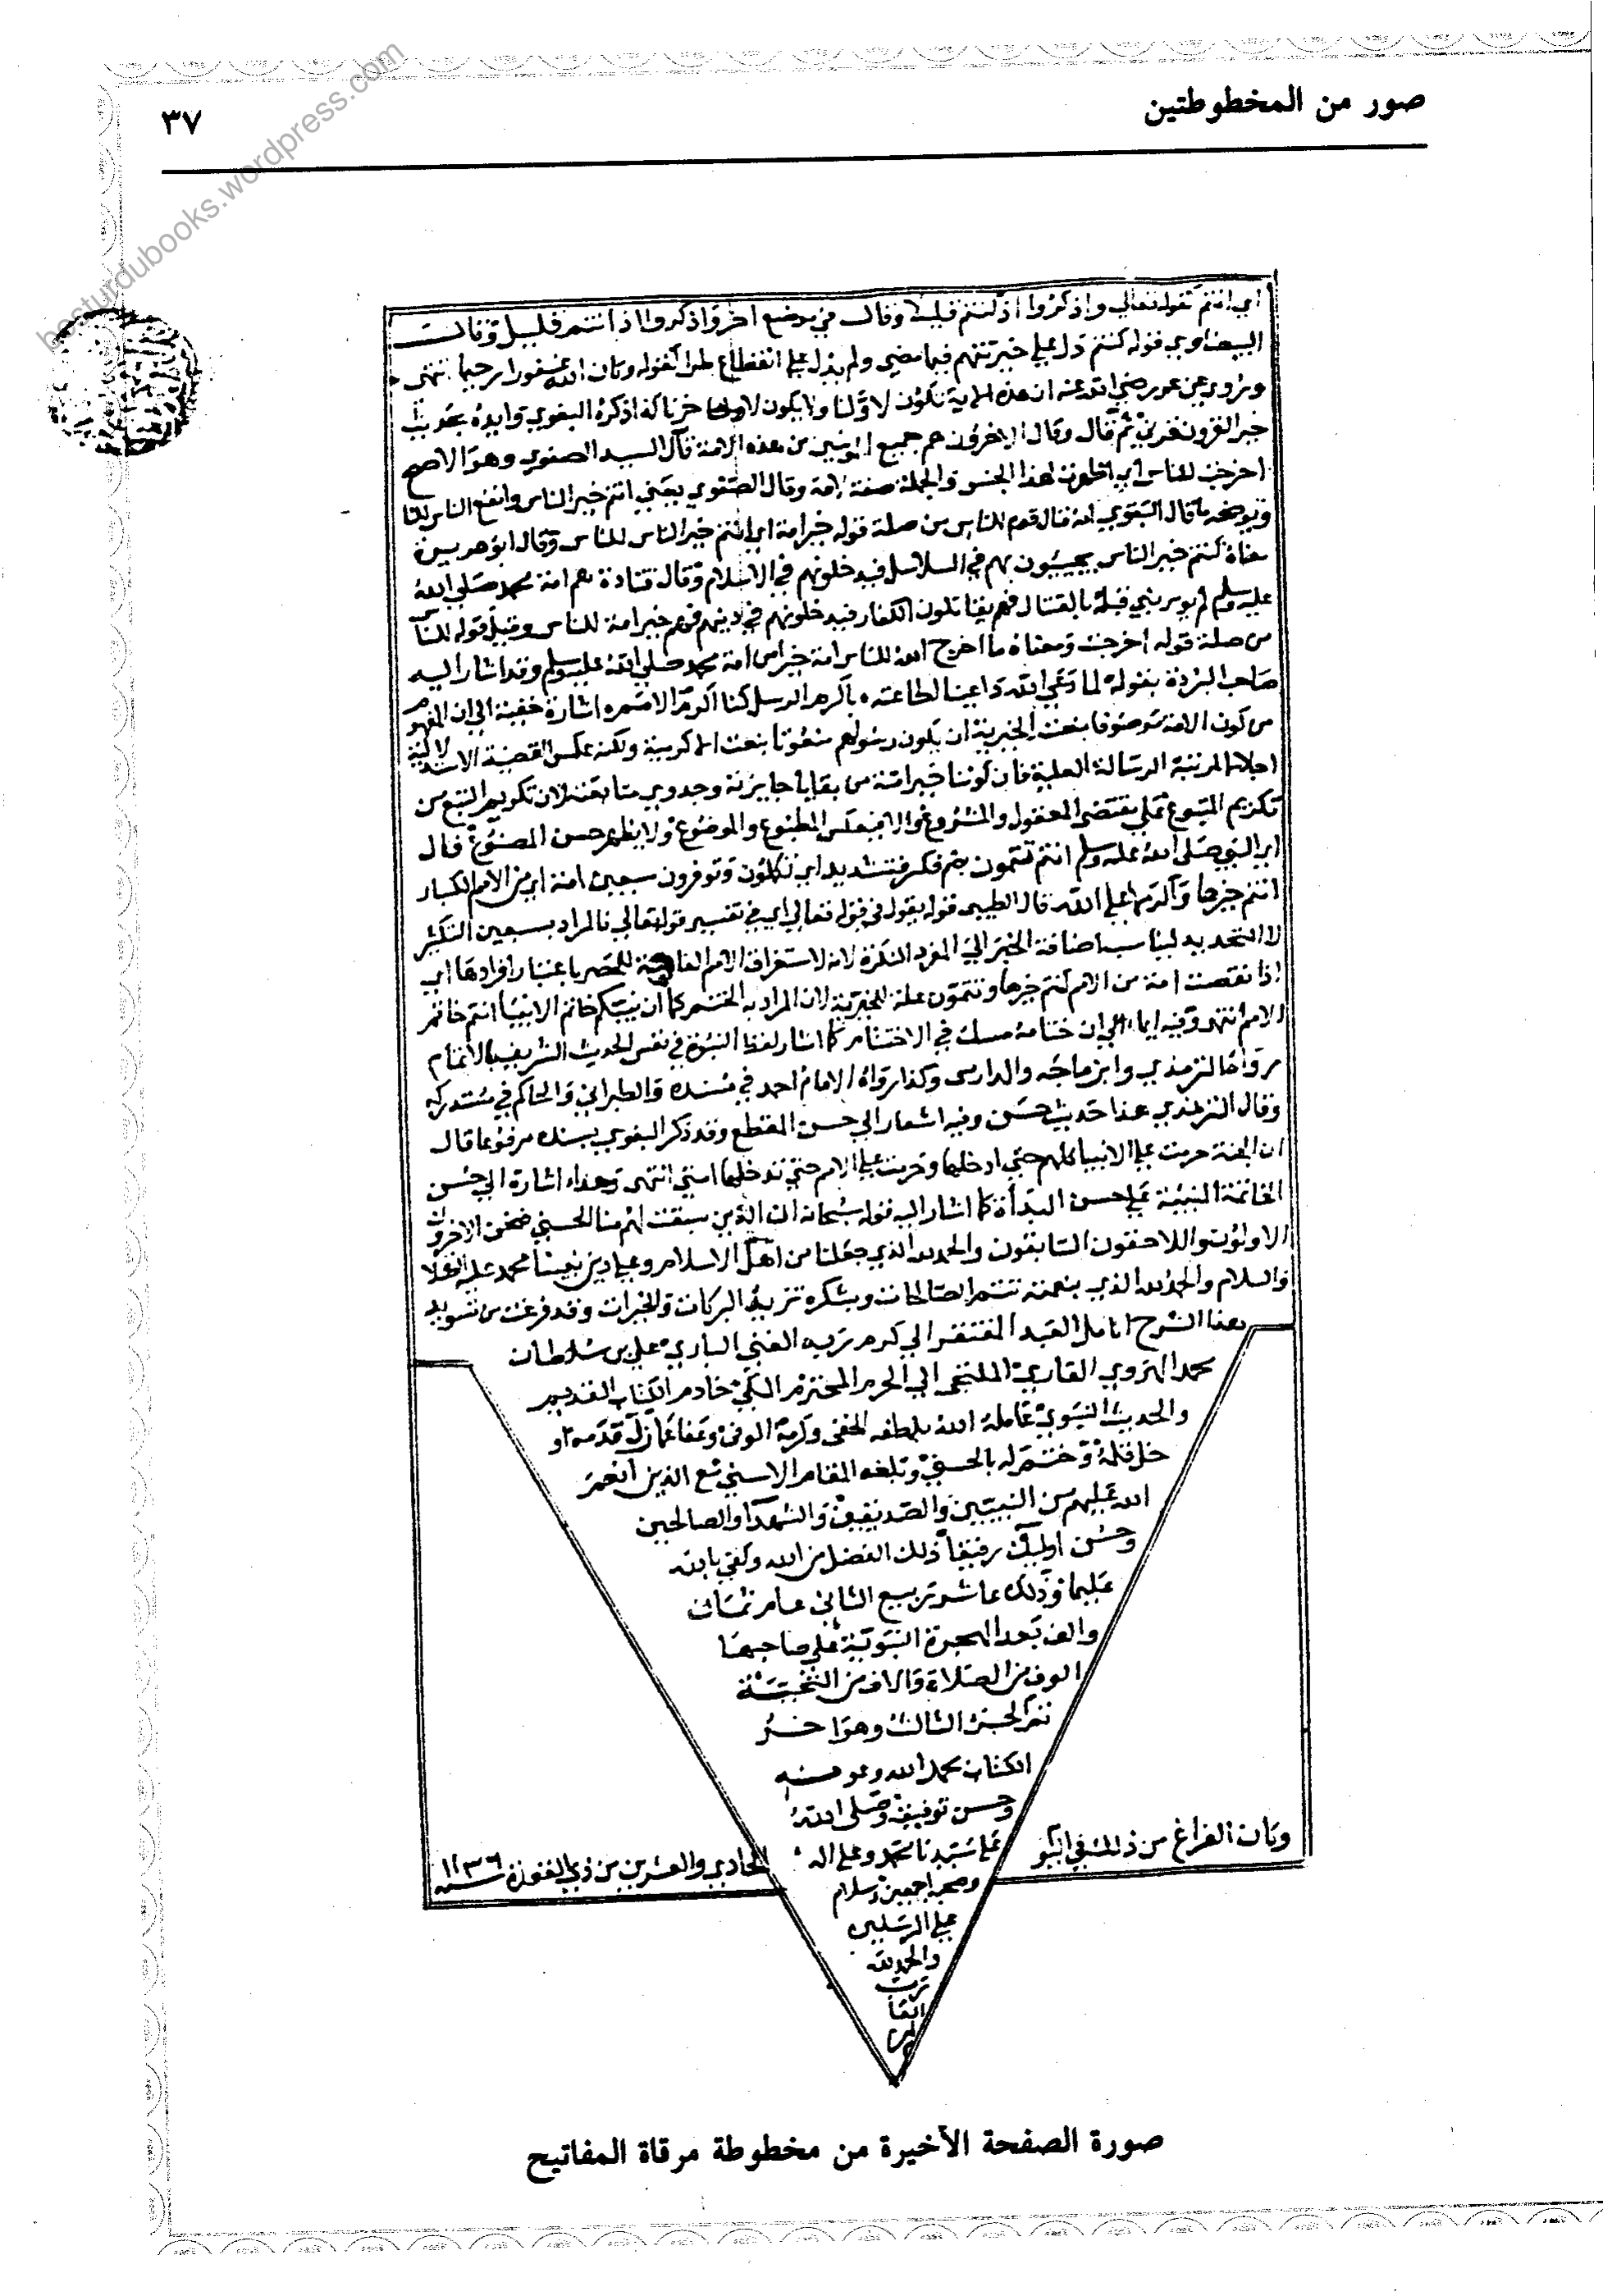 صور من المخطوطتين
٣٧
besturdubooks.wordpress.com
اي انتم كقوله تعالى واذكروا اذ كنتم قليلا وقال في موضع اخر واذكروا اذ انتم قليل وقالت
البيضاوي قوله كنتم دل على خيريتهم فيما مضى ولم يدل على انقطاع طرا كقوله وكان الله غفورا رحيما انتهى
وروي عن عمر رضي الله عنه ان هذه الاية تكون لاولنا ولا يكون لاخرنا كذا ذكره البغوي وايده بحديث
خير القرون قرني ثم قال وقال الاخرون هم جميع المؤمنين من هذه الامة قال السيد الصفوي وهو الاصح
اخرجت للناس اي اظهرت لهذا الجنس والجملة صفة امة وقال الصفوي يعني انتم خير الناس وانفع الناس للنا
ويوضحه ما قال البغوي انه قال قوم للناس من صلة قوله خير امة اي انتم خير الناس للناس وقال ابو هريرة
معناه كنتم خير الناس يجيئون بهم في السلاسل فيدخلونهم في الاسلام وقال قتادة هم امة محمد صلى الله
عليه وسلم لم يومر نبي قبله بالقتال فهم يقاتلون الكفار فيدخلونهم في دينهم فهم خير امة للناس وقيل قوله للناس
من صلة قوله اخرجت ومعناه ما اخرج الله للناس امة خيرا من امة محمد صلى الله عليه وسلم وقد اشار اليه
صاحب البردة بقوله لما دعى الله داعينا لطاعته باكرم الرسل كنا اكرم الامم اشارة خفية الى ان المفهوم
من كون الامة موصوفا بنعت الخيرية ان يكون رسولهم منعوتا بنعت الاكرمية ولكنه عكس القضية الاستدلالية
اجلالا لمرتبة الرسالة العلية فان كوننا خير امة من بقايا جايزته وجدوى متابعته لان تكريم التبع من
تكريم المتبوع على مقتضى المعقول والمشروع والا فينعكس المطبوع والموضوع ولا يظهر حسن المصنوع قال
اي النبي صلى الله عليه وسلم انتم تتمون بضم فكسر فتشديد اي تكملون وتوفرون سبعين امة اي من الامم الكبار
انتم خيرها واكرمها على الله قال الطيبي قوله يقول في قوله تعالى اي في تفسير قوله تعالى فالمراد بسبعين التكثير
لا التحديد ليناسب اضافة الخير الى المفرد النكرة لانه لاستغراق الامم الفايتة للحصر باعتبار افرادها اي
اذا نقصت امة من الامم كنتم خيرها وتتمون علة للخيرية لان المراد به الختم كما ان نبيكم خاتم الانبيا انتم خاتم
الامم انتهى وفيه ايماء الى ان ختامه مسك في الاختتام كما اشار لفظ النبوة في نفس الحديث الشريف بالاتمام
رواه الترمذي وابن ماجه والدارمي وكذا رواه الامام احمد في مسنده والطبراني والحاكم في مستدركه
وقال الترمذي هذا حديث حسن وفيه اشعار الى حسن المقطع وقد ذكر البغوي بسنده مرفوعا قال
ان الجنة حرمت على الانبيا كلهم حتى ادخلها وحرمت على الامم حتى تدخلها امتي انتهى وهذا اشارة الى حسن
الخاتمة المبنية على حسن البداة كما اشار اليه قوله سبحانه ان الذين سبقت لهم منا الحسنى فنحن الاخرون
الاولون واللاحقون السابقون والحمد لله الذي جعلنا من اهل الاسلام وعلى دين نبينا محمد عليه الصلاة
والسلام والحمد لله الذي بنعمته تتم الصالحات وبشكره تزيد البركات والخيرات وقد فرغت من تسويد
هذا الشرح انا العبد المفتقر الى كرم ربه الغني الباري علي بن سلطان
محمد الهروي القاري الملتجي الى الحرم المحترم المكي خادم الكتاب القديم
والحديث النبوي عامله الله بلطفه الخفي وكرمه الوفي وعفا عما زل قدمه او
خل قلمه وختم له بالحسنى وبلغه المقام الاسنى مع الذين انعم
الله عليهم من النبيين والصديقين والشهدا والصالحين
وحسن اوليك رفيقا ذلك الفضل من الله وكفى بالله
عليما وذلك عاشر ربيع الثاني عام ثمان
والف بعد الهجرة النبوية على صاحبها
الوف من الصلاة والاف من التحية
تم الجزء الثالث وهو اخر
الكتاب بحمد الله وعونه
وحسن توفيقه وصلى الله
على سيدنا محمد وعلى اله
وصحبه اجمعين وسلام
على المرسلين
والحمد لله
رب
العا
لمين
وكان الفراغ من ذلك في اليوم
الحادي والعشرين من ذي القعدة سنة ١١٣٦
صورة الصفحة الأخيرة من مخطوطة مرقاة المفاتيح